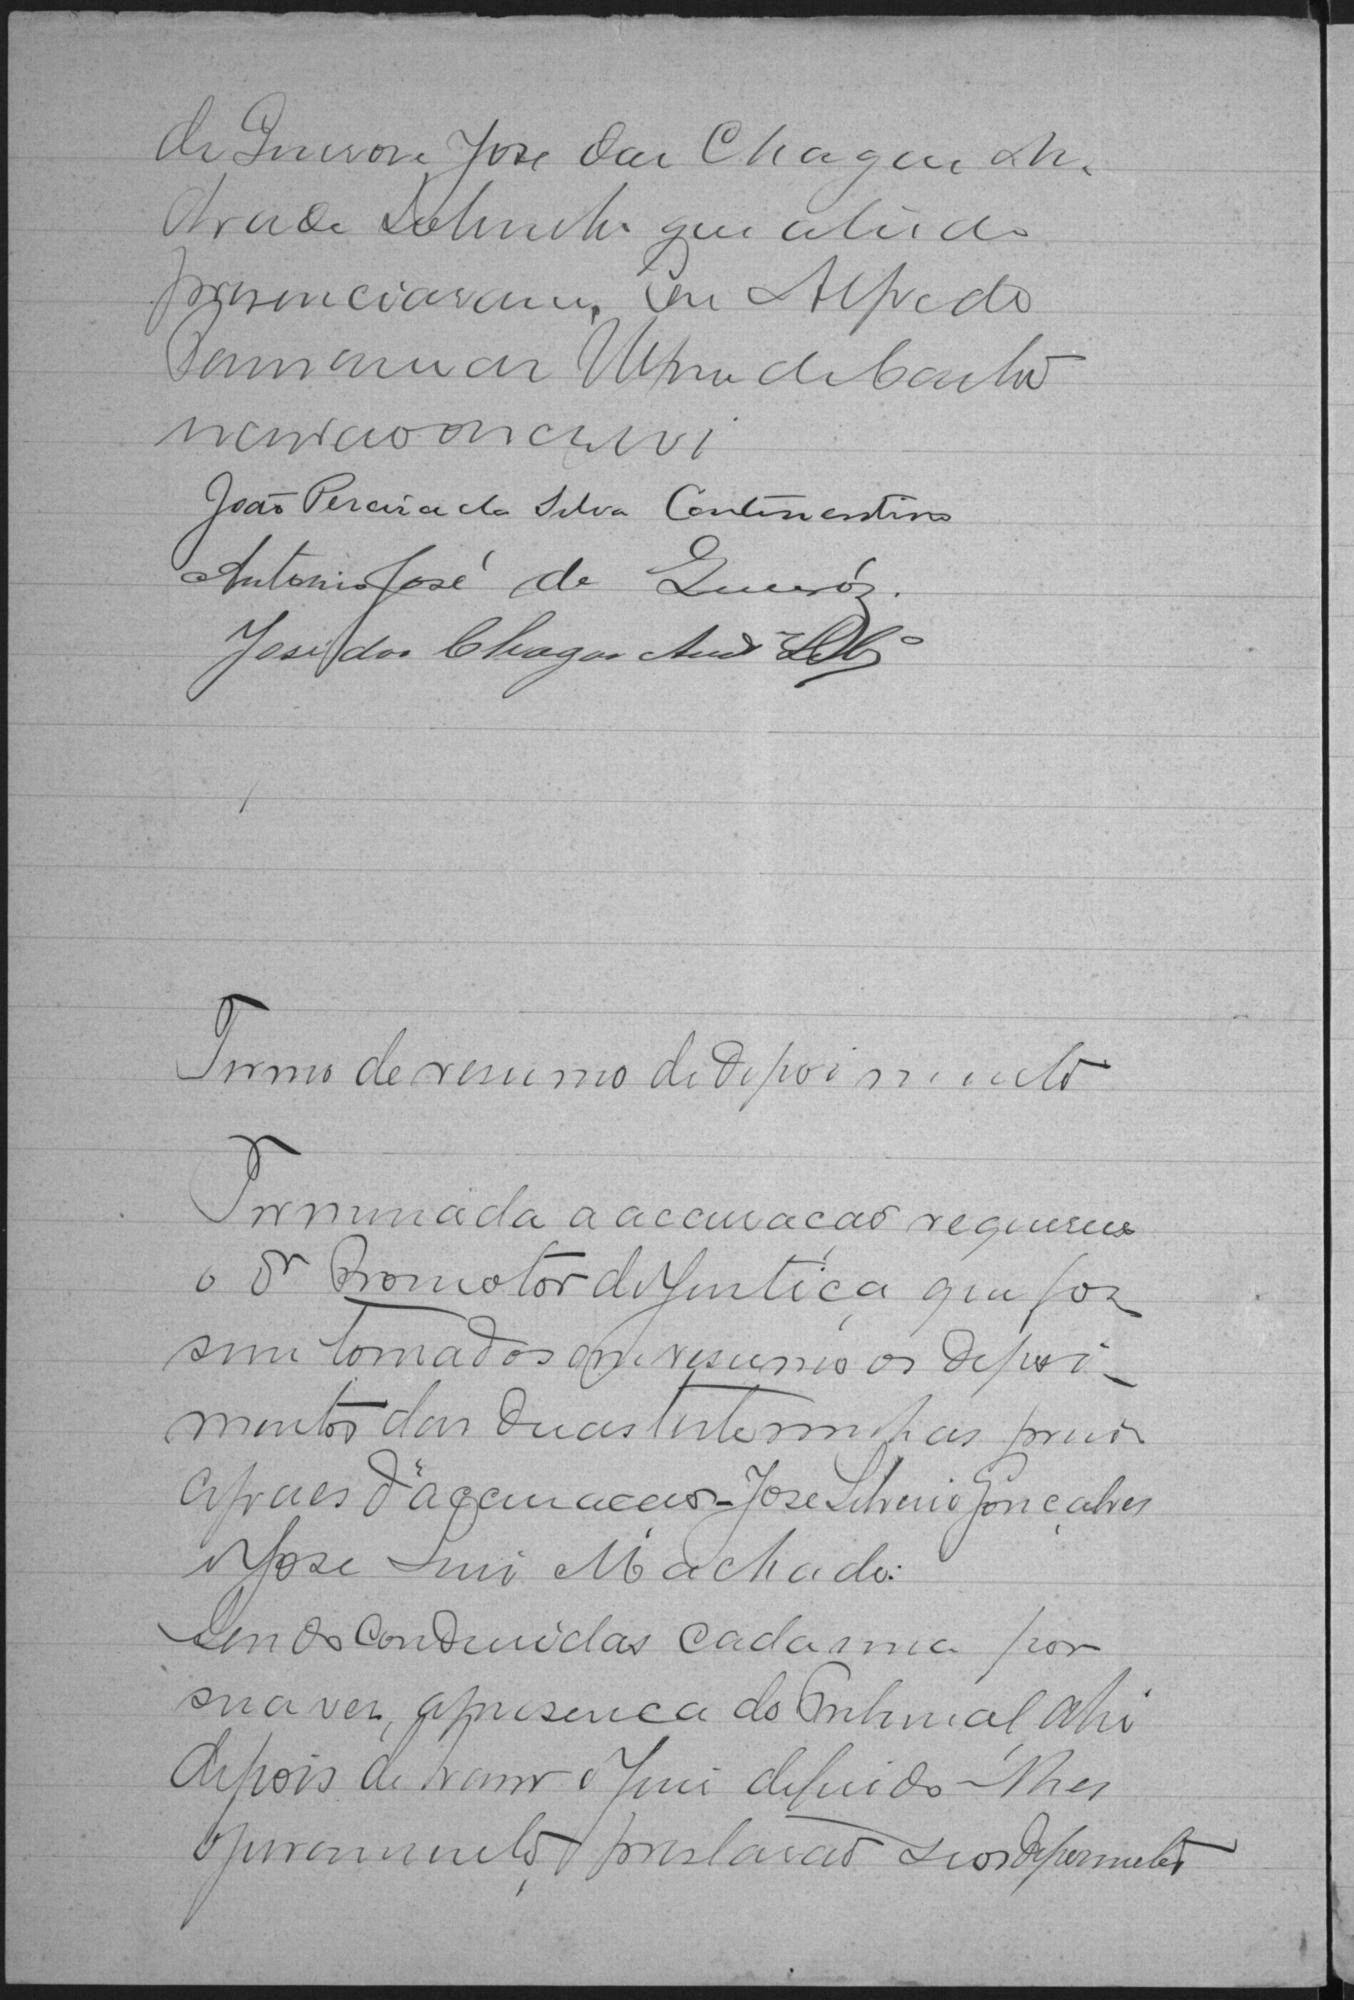 de Queiroz e José das Chagas An-
drade Sobrinho que a tudo
presenciaram. Eu Alfredo
de Castro
escrevi
João Pereira da Silva Continentino
Antonio José de Queiróz.
José das Chagas Andr.e Sobr.o
Termo de resumo de depoimento
Terminada a accusação requereu
o Dr Promotor de Justiça que fos
sem tomados em resumo os depoi-
mentos das duas testemunhas prin
cipaes d'accusação - José Silverio Gonçalves
e José Luis Machado:
Sendo conduzidas cada uma por
sua vez, a presença do Tribunal, ahi
depois de haver o Juiz deferido-lhes
o juramento, prestarão seos depoimentos